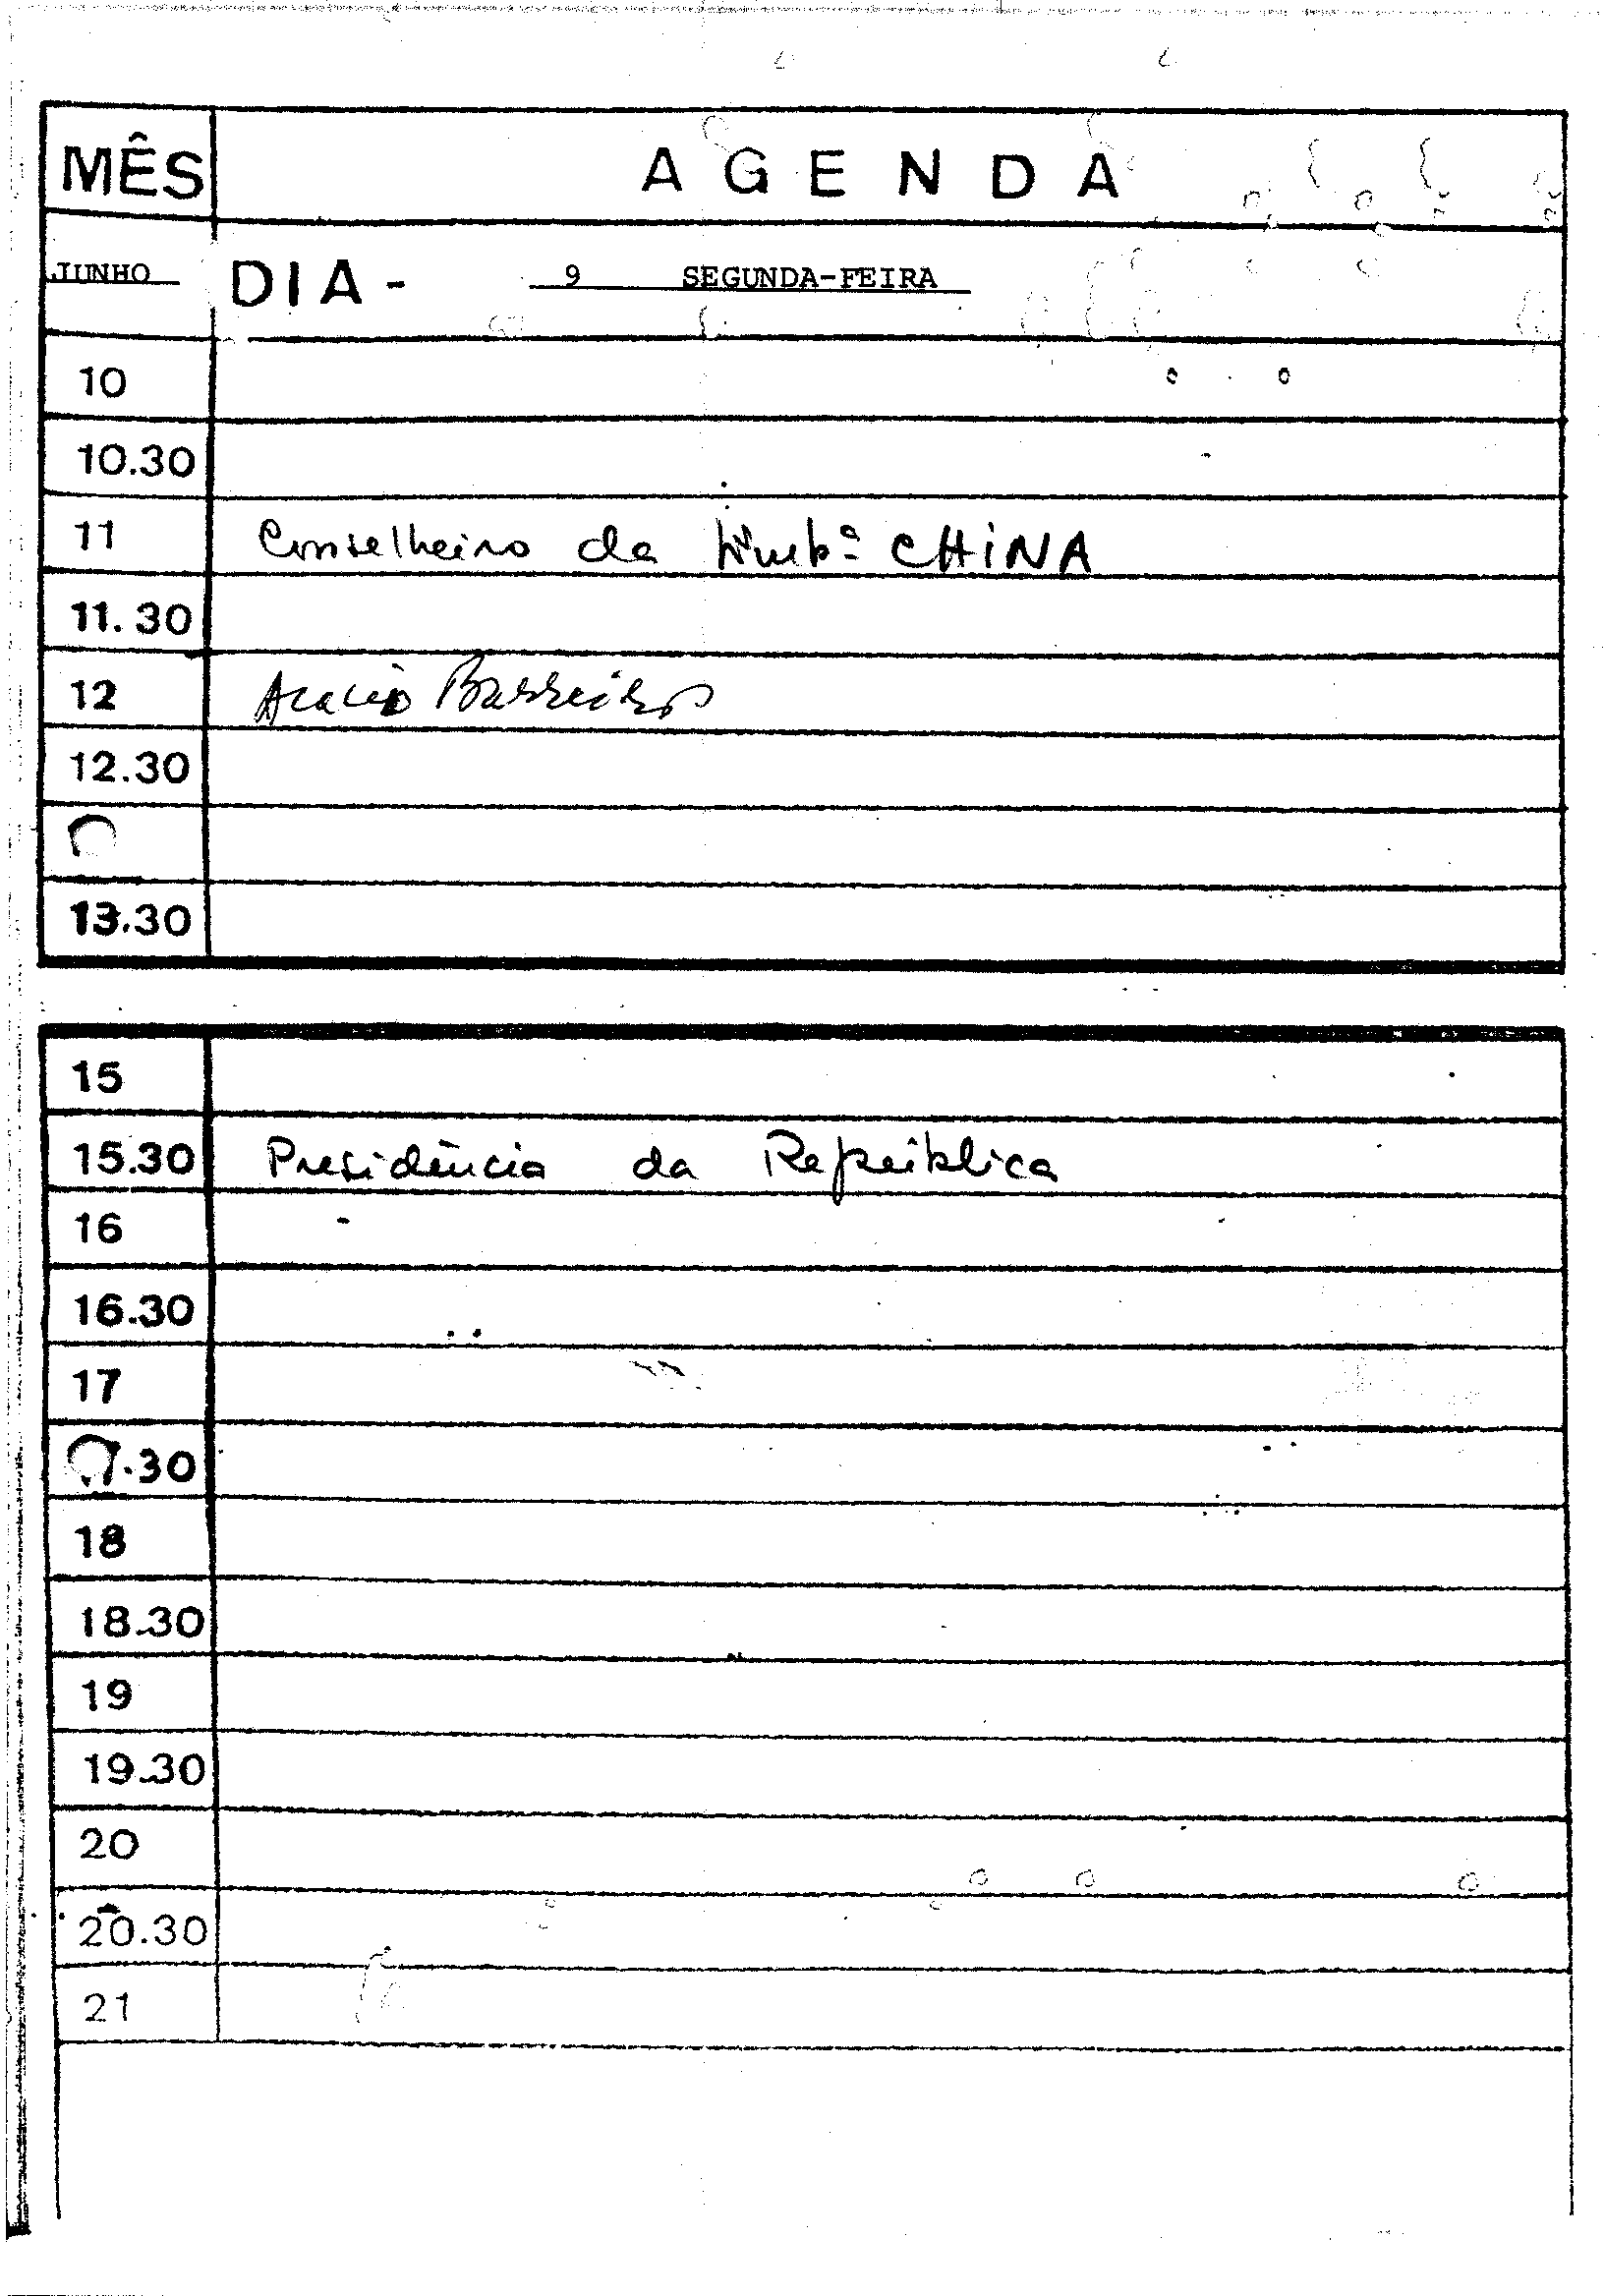 MÊS A G E N D A
JUNHO DIA - 9 SEGUNDA-FEIRA
10
10.30
11 Conselheiro da Embª CHINA
11.30
12 Acacio Barreiros
12.30
13.30
15
15.30 Presidência da República
16
16.30
17
17.30
18
18.30
19
19.30
20
20.30
21